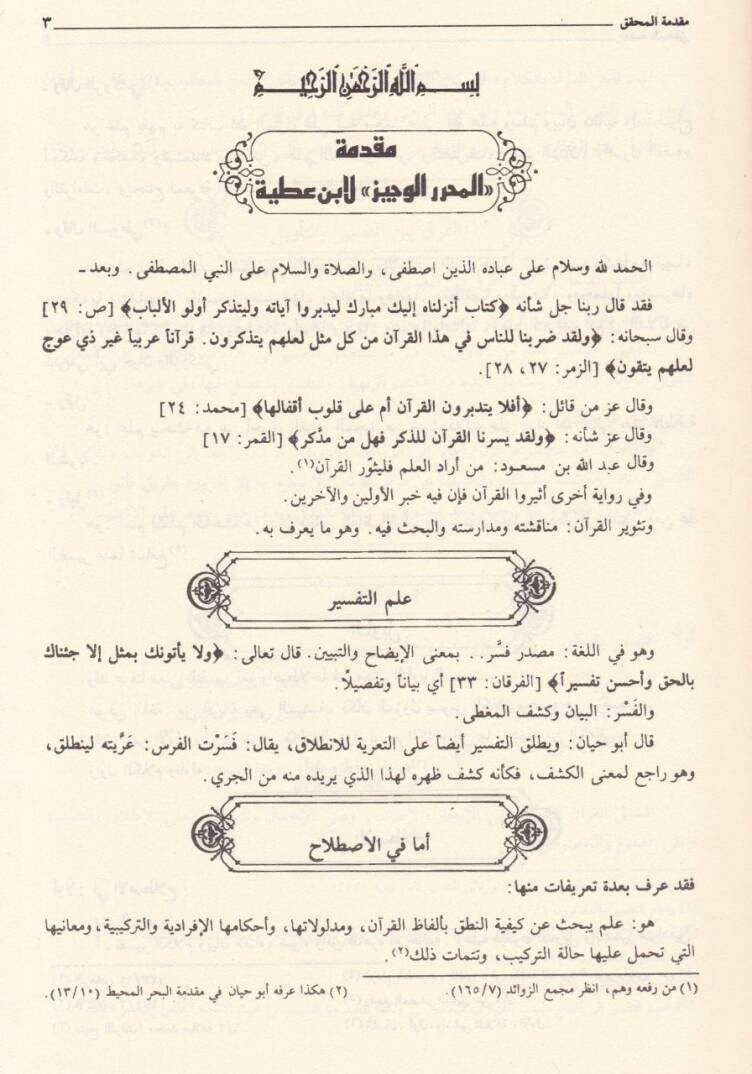 مقدمة المحقق ٣
بسم الله الرحمن الرحيم
مقدمة
«المحرر الوجيز» لابن عطية
الحمد لله وسلام على عباده الذين اصطفى، والصلاة والسلام على النبي المصطفى. وبعد ـ
فقد قال ربنا جل شأنه ﴿كتاب أنزلناه إليك مبارك ليدبروا آياته وليتذكر أولو الألباب﴾ [ص: ٢٩]
وقال سبحانه: ﴿ولقد ضربنا للناس في هذا القرآن من كل مثل لعلهم يتذكرون. قرآناً عربياً غير ذي عوج
لعلهم يتقون﴾ [الزمر: ٢٧، ٢٨].
وقال عز من قائل: ﴿أفلا يتدبرون القرآن أم على قلوب أقفالها﴾ [محمد: ٢٤]
وقال عز شأنه: ﴿ولقد يسرنا القرآن للذكر فهل من مدَّكر﴾ [القمر: ١٧]
وقال عبد الله بن مسعود: من أراد العلم فليثوّر القرآن(١).
وفي رواية أخرى أثيروا القرآن فإن فيه خبر الأولين والآخرين.
وتثوير القرآن: مناقشته ومدارسته والبحث فيه. وهو ما يعرف به.
علم التفسير
وهو في اللغة: مصدر فسَّر.. بمعنى الإيضاح والتبيين. قال تعالى: ﴿ولا يأتونك بمثل إلا جئناك
بالحق وأحسن تفسيراً﴾ [الفرقان: ٣٣] أي بياناً وتفصيلاً.
والفَسْر: البيان وكشف المغطى.
قال أبو حيان: ويطلق التفسير أيضاً على التعرية للانطلاق، يقال: فَسَرْت الفرس: عَرَّيته لينطلق،
وهو راجع لمعنى الكشف، فكأنه كشف ظهره لهذا الذي يريده منه من الجري.
أما في الاصطلاح
فقد عرف بعدة تعريفات منها:
هو: علم يبحث عن كيفية النطق بألفاظ القرآن، ومدلولاتها، وأحكامها الإفرادية والتركيبية، ومعانيها
التي تحمل عليها حالة التركيب، وتتمات ذلك(٢).
(١) من رفعه وهم، انظر مجمع الزوائد (١٦٥/٧). (٢) هكذا عرفه أبو حيان في مقدمة البحر المحيط (١٣/١٠).